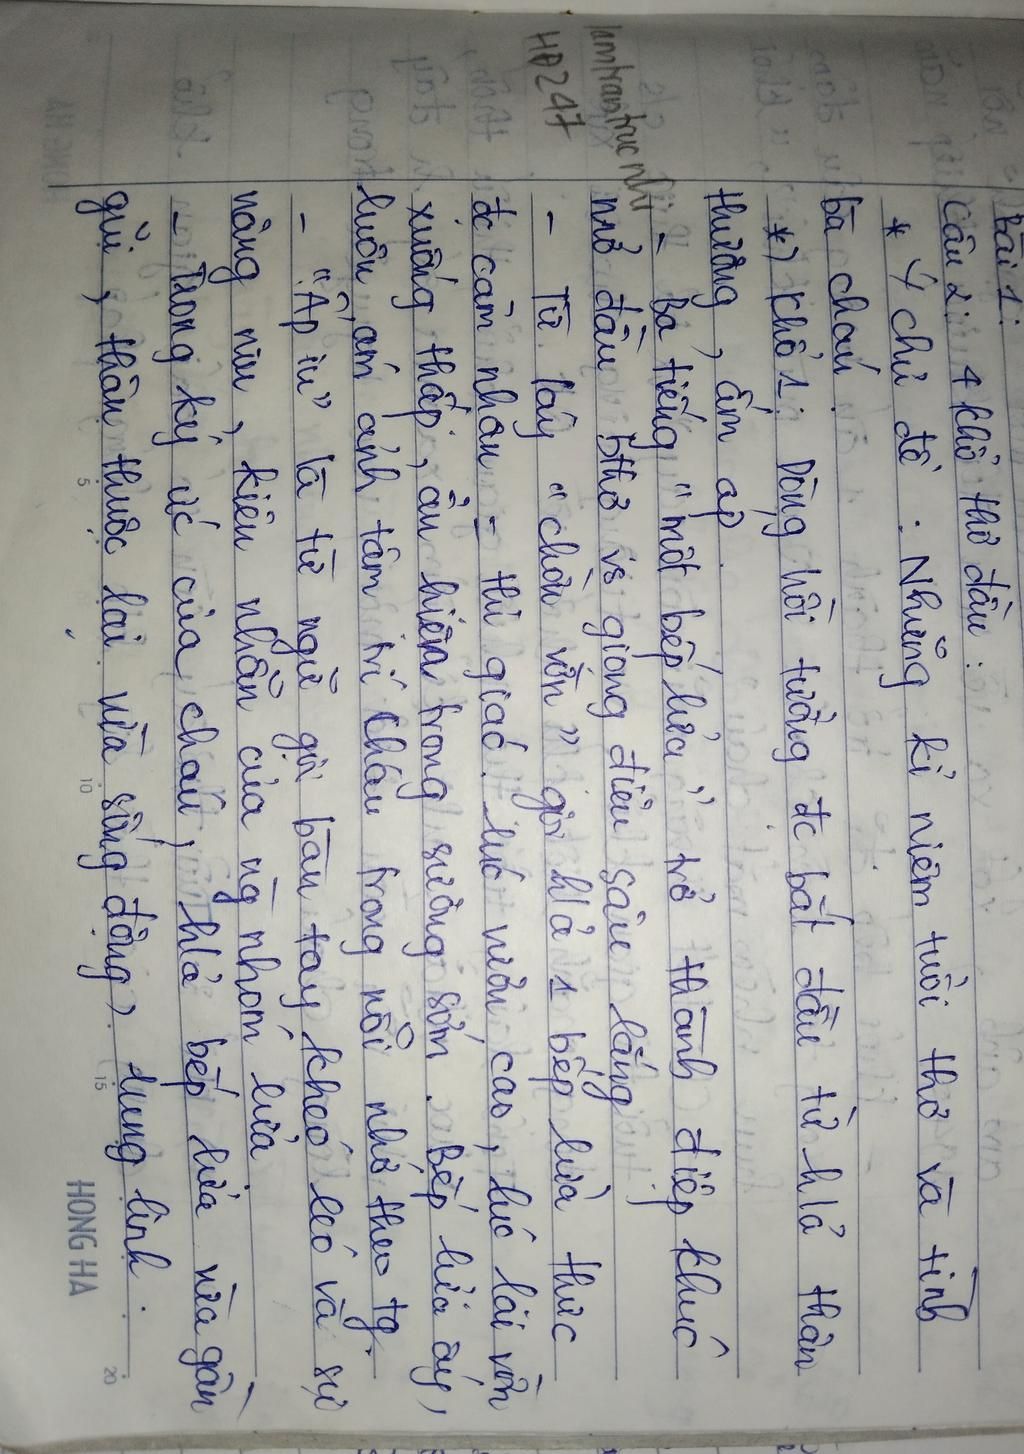 Bài 1:
Câu 2: 4 khổ thơ đầu:
* Ý chủ đề: Những kỉ niệm tuổi thơ và tình
bà cháu.
*) Khổ 1: Dòng hồi tưởng đc bắt đầu từ h/ả thân
thương, ấm áp.
- Ba tiếng "một bếp lửa" trở thành điệp khúc
mở đầu bthơ vs giọng điệu sâu lắng
- Từ láy "chờn vờn" gợi h/ả 1 bếp lửa thực
đc cảm nhận = thị giác. lúc vươn cao, lúc lại vờn
xuống thấp, ẩn hiện trong sương sớm. Bếp lửa ấy,
luôn ám ảnh tâm trí cháu trong nỗi nhớ theo tg.
- "Ấp iu" là từ ngữ gợi bàn tay khéo léo và sự
nâng niu, kiên nhẫn của ng nhóm lửa.
- Trong ký ức của cháu, h/ả bếp lửa vừa gần
gũi, thân thuộc lại vừa sống động, lung linh.
lamtrantrucnhi
HĐ247
HONG HA
5
10
15
20